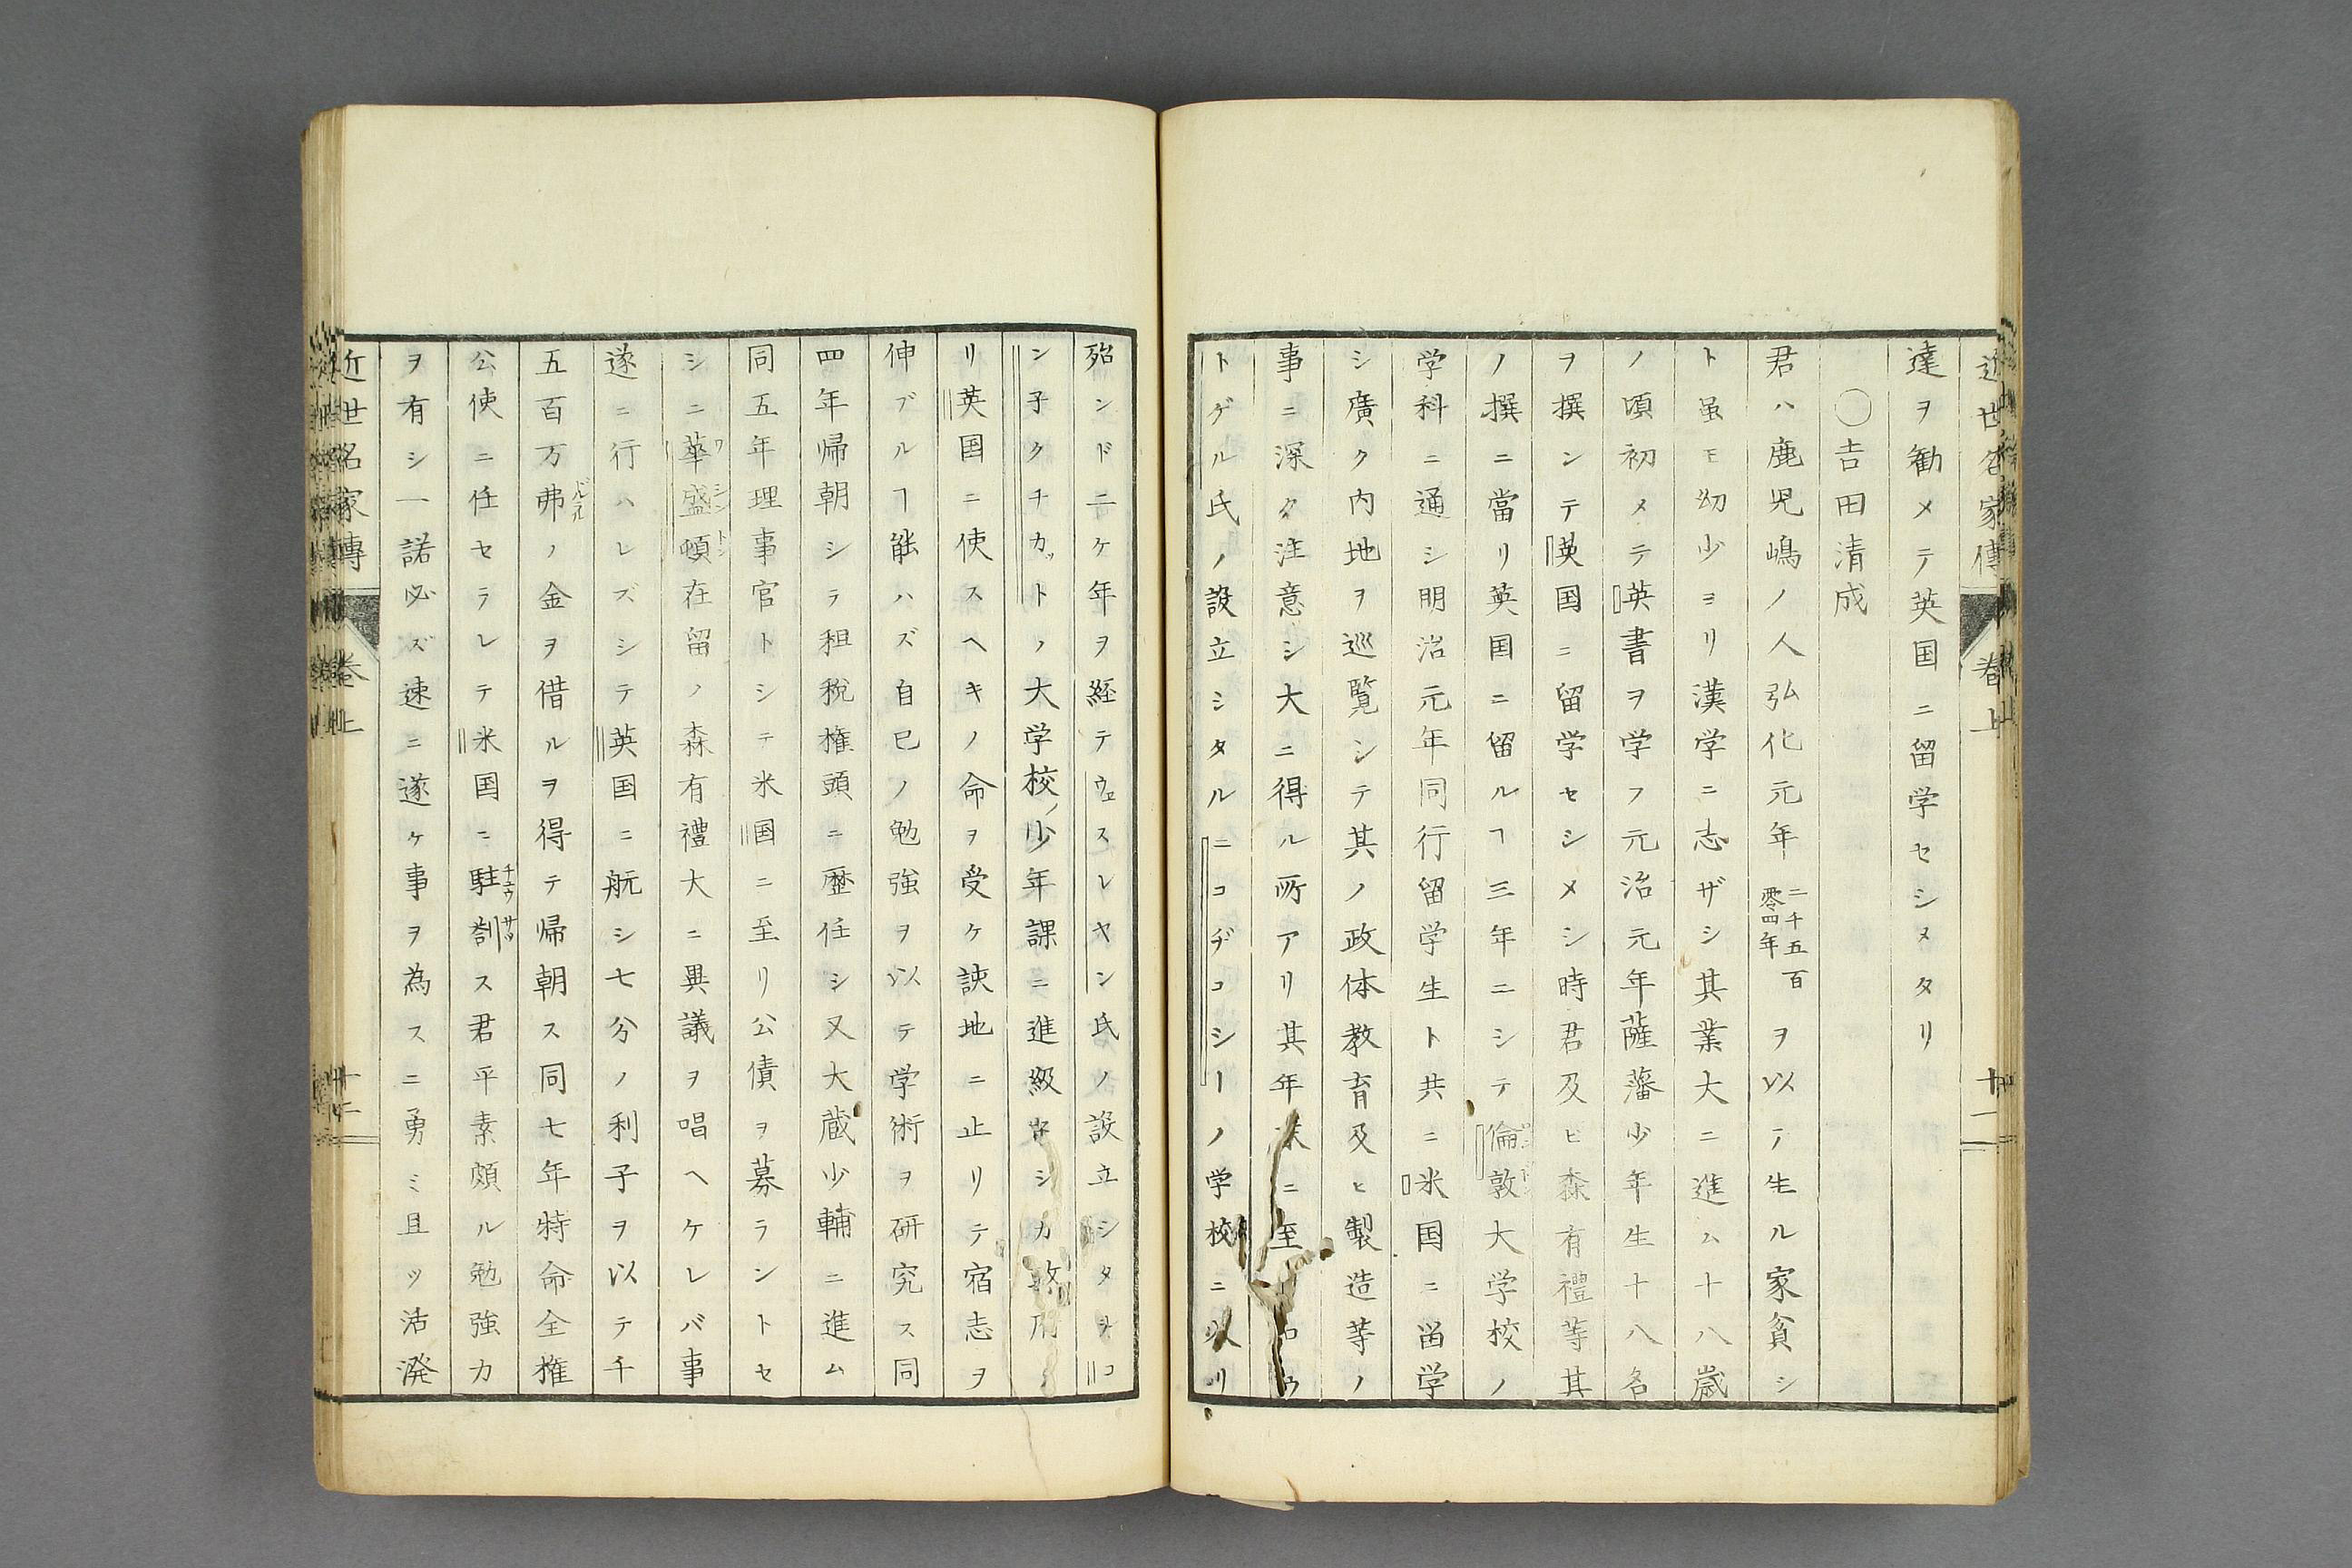 近世名家傳 卷上 十一
達ヲ勧メテ英国ニ留学セシメタリ
〇吉田清成
君ハ鹿児嶋ノ人弘化元年二千五百零四年ヲ以テ生ル家貧シ
ト虽モ幼少ヨリ漢学ニ志ザシ其業大ニ進ム十八歳
ノ頃初メテ英書ヲ学フ元治元年薩藩少年生十八名
ヲ撰ンテ英国ニ留学セシメシ時君及ヒ森有禮等其
ノ撰ニ當リ英国ニ留ルヿ三年ニシテ倫敦大学校ノ
学科ニ通シ明治元年同行留学生ト共ニ米国ニ留学
シ廣ク内地ヲ巡覧シテ其ノ政体教育及ヒ製造等ノ
事ニ深ク注意シ大ニ得ル所アリ其年末ニ至
トゲル氏ノ設立シタルニコヂコシーノ学校ニ
殆ンド二ケ年ヲ経テウェスレヤン氏ノ設立シタルコ
ン子クチカットノ大学校ノ少年課ニ進級セシカ政府ヨ
リ英国ニ使スヘキノ命ヲ受ケ該地ニ止リテ宿志ヲ
伸ブルヿ能ハズ自已ノ勉強ヲ以テ学術ヲ研究ス同
四年帰朝シテ租税権頭ニ歴任シ又大蔵少輔ニ進ム
同五年理事官トシテ米国ニ至リ公債ヲ募ラントセ
シニ華盛頓ワシントン在留ノ森有禮大ニ異議ヲ唱ヘケレバ事
遂ニ行ハレズシテ英国ニ航シ七分ノ利子ヲ以テ千
五百万弗ドルノ金ヲ借ルヲ得テ帰朝ス同七年特命全権
公使ニ任セラレテ米国ニ駐劄チウサツス君平素頗ル勉強力
ヲ有シ一諾必ズ速ニ遂ケ事ヲ為スニ勇ミ且ツ活溌
近世名家傳 卷上 十二